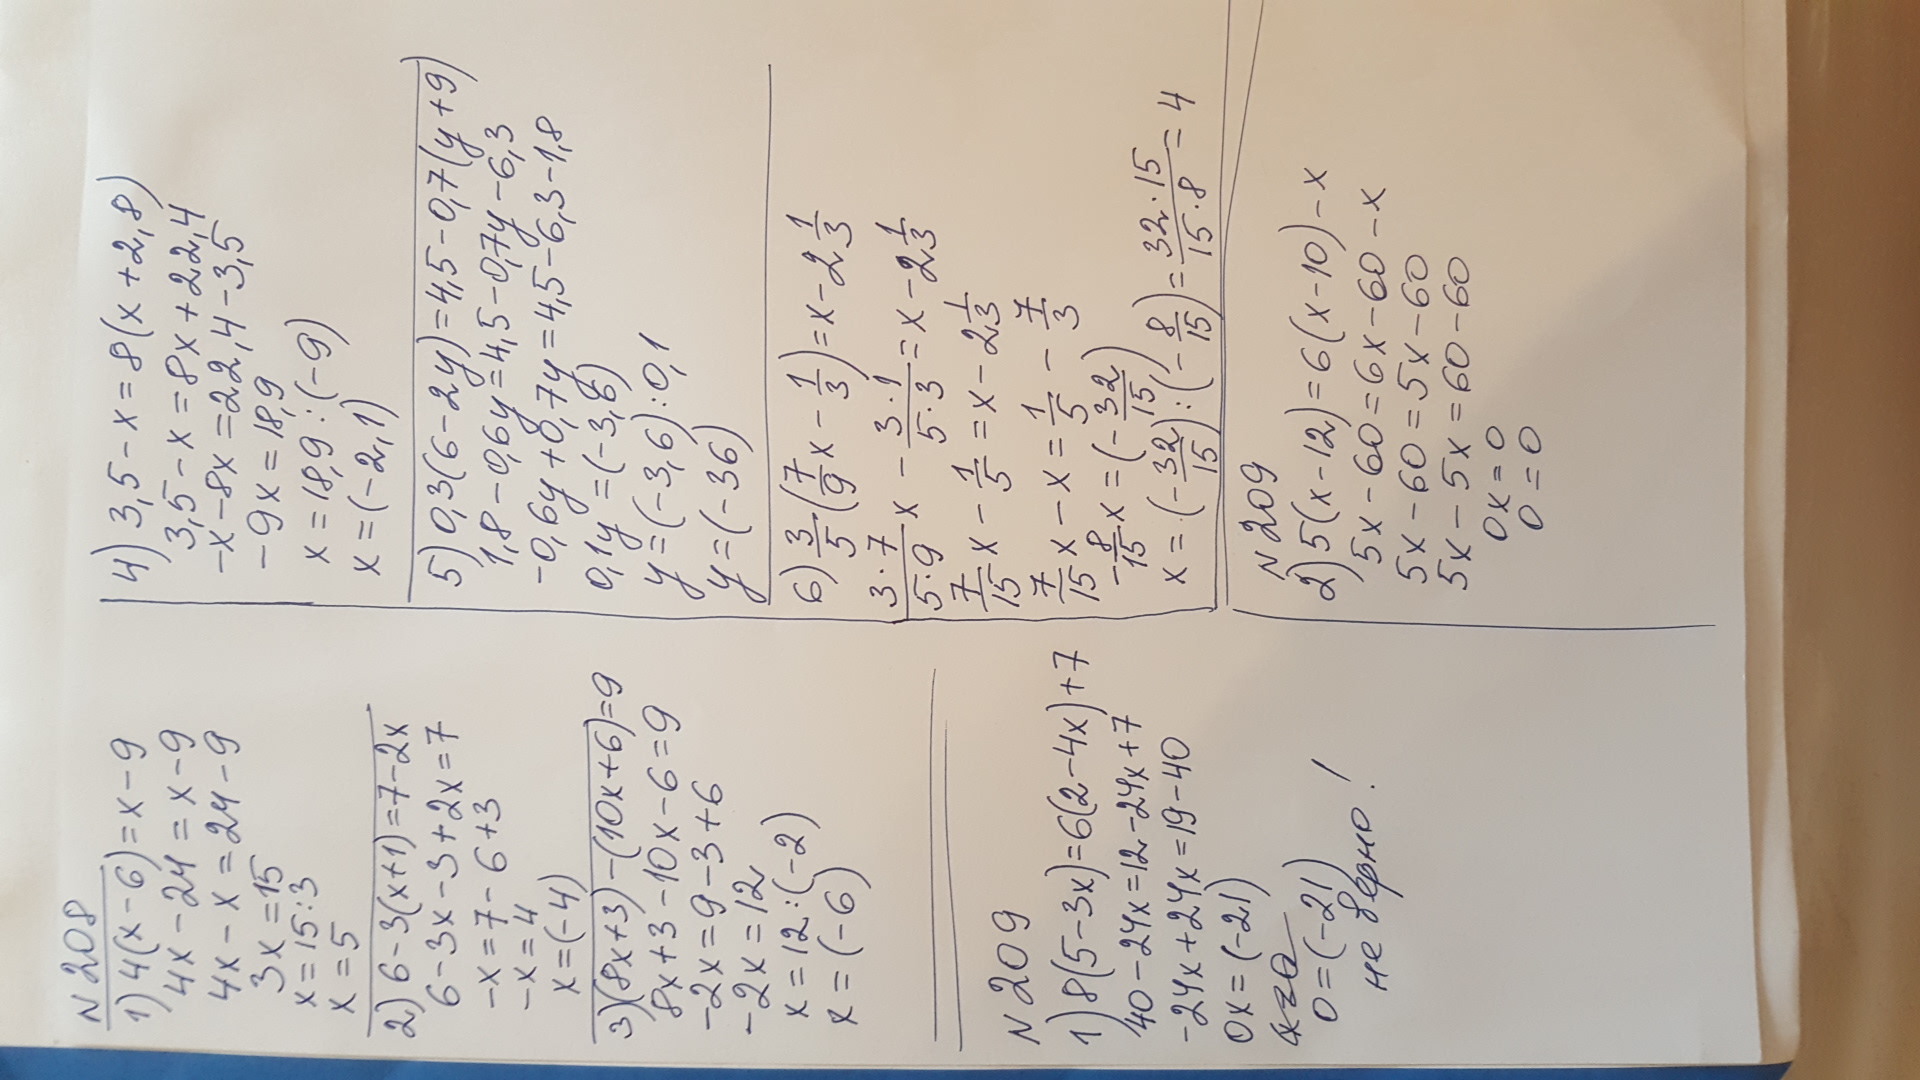 N 208
1) 4(x-6)=x-9
4x-24=x-9
4x-x=24-9
3x=15
x=15:3
x=5
2) 6-3(x+1)=7-2x
6-3x-3+2x=7
-x=7-6+3
-x=4
x=(-4)
3)(8x+3)-(10x+6)=9
8x+3-10x-6=9
-2x=9-3+6
-2x=12
x=12:(-2)
x=(-6)
4) 3,5-x=8(x+2,8)
3,5-x=8x+22,4
-x-8x=22,4-3,5
-9x=18,9
x=18,9:(-9)
x=(-2,1)
5) 0,3(6-2y)=4,5-0,7(y+9)
1,8-0,6y=4,5-0,7y-6,3
-0,6y+0,7y=4,5-6,3-1,8
0,1y=(-3,6)
y=(-3,6):0,1
y=(-36)
6) 3/5(7/9x-1/3)=x-2 1/3
3·7/5·9x-3·1/5·3=x-2 1/3
7/15x-1/5=x-2 1/3
7/15x-x=1/5-7/3
-8/15x=(-32/15)
x=(-32/15):(-8/15)=32·15/15·8=4
N 209
1) 8(5-3x)=6(2-4x)+7
40-24x=12-24x+7
-24x+24x=19-40
0x=(-21)
0=(-21)
не верно!
N 209
2) 5(x-12)=6(x-10)-x
5x-60=6x-60-x
5x-60=5x-60
5x-5x=60-60
0x=0
0=0